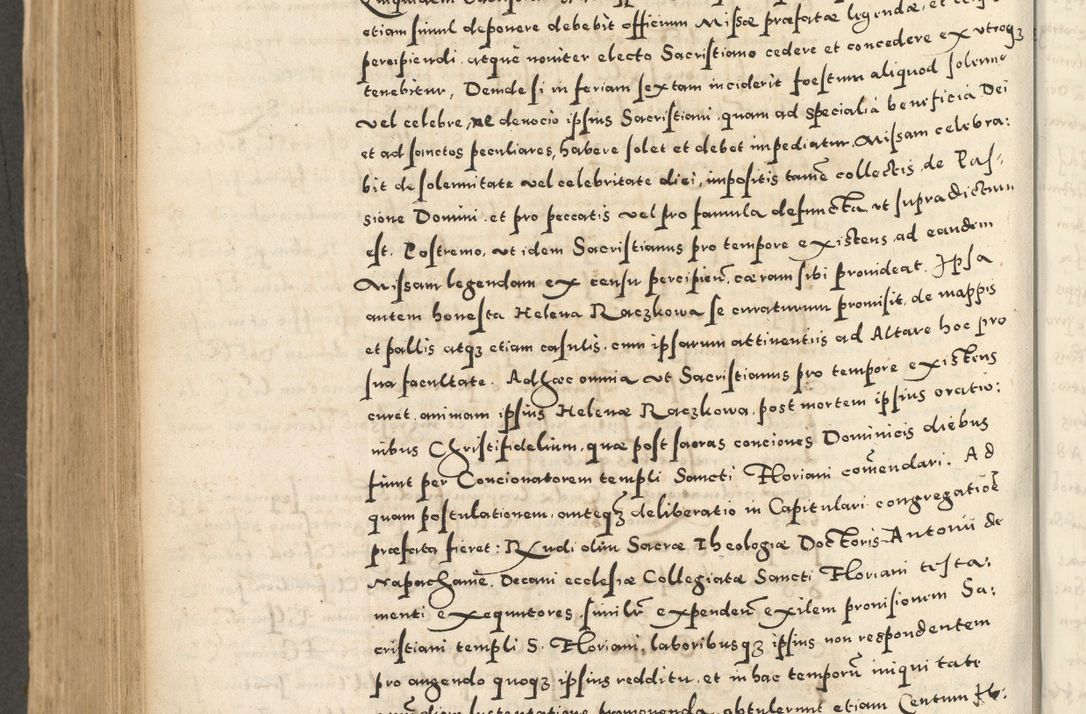 etiam simul deponere debebit officium Missæ præfatæ legendæ, et
percipiendi. atque noviter electo Sacristiano cedere et concedere ex utroqꝫ
tenebitur, Deinde si in feriam sextam inciderit foestum aliquod solenne
vel celebre, ne devocio ipsius Sacristiani, quam ad specialia beneficia Dei
et ad sanctos peculiares, habere solet et debet impediatur. Missam celebra:
bit de solennitate vel celebritate diei, impositis tamē collectis, de Pas-
sione Domini. et pro peccatis vel pro famula defuncta, ut supradictum
est. Postremo, ut idem Sacristianus pro tempore existens, ad eandem
Missam legendam ex censu percipien̄, cæram sibi provideat. Ipsa
autem honesta Helena Raczkowa se curaturum promisit, de mappis
et pallis atqꝫ etiam casulis, cum ipsarum attinentiis ad Altare hoc pro
sua facultate. Ad hæc omnia ut Sacristianus pro tempore existens
curet, animam ipsius Helenæ Raczkowa, post mortem ipsius oratio:
nibus Christifidelium, quæ post sacras conciones Dominicis diebus
fiunt per Concionatorem templi Sancti Floriani com̄endari. Ad
quam postulationem, anteqꝫ deliberatio in Capitulari congregatiōe
præfata fieret: Rx̄ndi olim Sacræ Theologiæ Doctoris Antonii de
Napachanie, Decani ecclesiæ Collegiatæ Sancti Floriani testa:
menti exequutores, similr̄ expenden̄ exilem provisionem Sa:
cristiani templi S. Floriani, laboribusqꝫ ipsius non respondentem
pro augendo quoqꝫ ipsius redditu, et in hac temporū iniquitate
sustentatione promovenda, obtulerunt etiam Centum